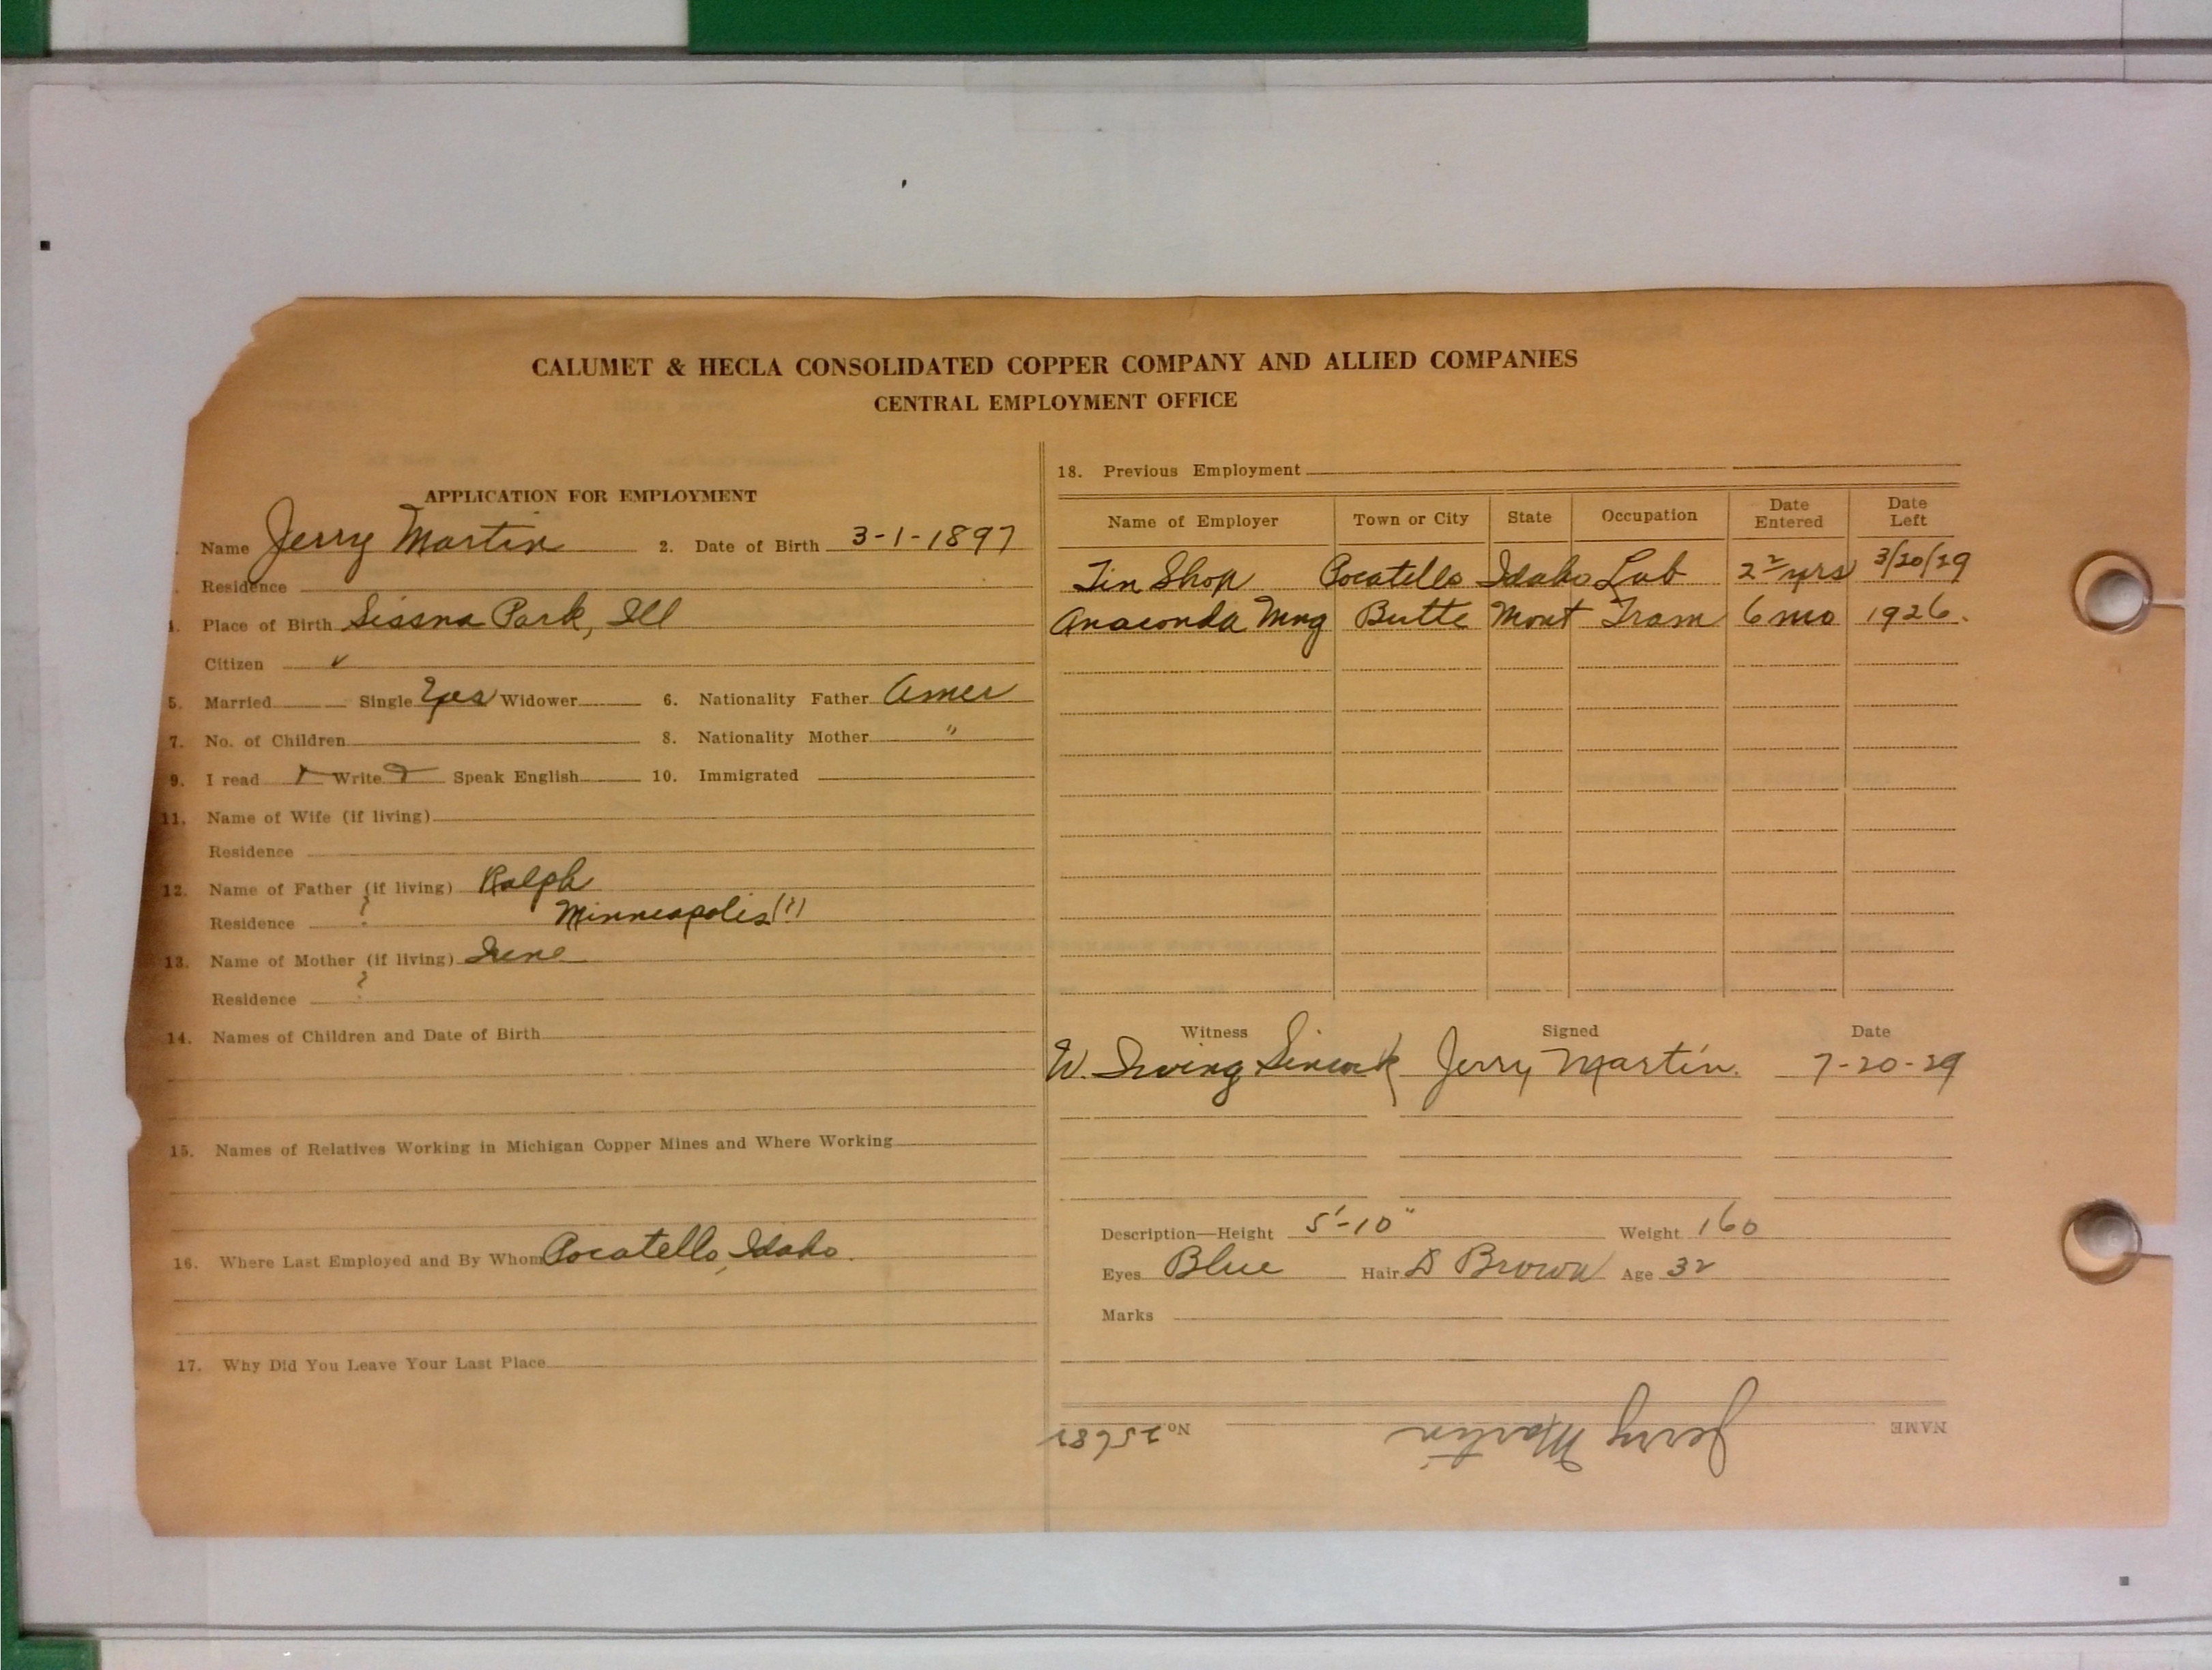 CALUMET & HECLA CONSOLIDATED COPPER COMPANY AND ALLIED COMPANIES
CENTRAL EMPLOYMENT OFFICE
APPLICATION FOR EMPLOYMENT
Name Jerry Martin 2. Date of Birth 3-1-1897
Residence
4. Place of Birth Sissna Park, Ill
Citizen ✓
5. Married Single Yes Widower 6. Nationality Father Amer
7. No. of Children 8. Nationality Mother "
9. I read Write Speak English 10. Immigrated
11. Name of Wife (if living)
Residence
12. Name of Father (if living) Ralph
Residence ? Minneapolis (?)
13. Name of Mother (if living) Irene
Residence ?
14. Names of Children and Date of Birth
15. Names of Relatives Working in Michigan Copper Mines and Where Working
16. Where Last Employed and By Whom Pocatello, Idaho.
17. Why Did You Leave Your Last Place
18. Previous Employment
Name of Employer Town or City State Occupation Date Entered Date Left
Tin Shop Pocatello Idaho Lab yrs 3/20/29
Anaconda Mng Butte Mont Tram 6 mo 1926.
Witness Signed Date
W. Irving Sincock Jerry Martin. 7-20-29
Description—Height 5'-10" Weight 160
Eyes Blue Hair D Brown Age 32
Marks
NAME Jerry Martin No. 25682